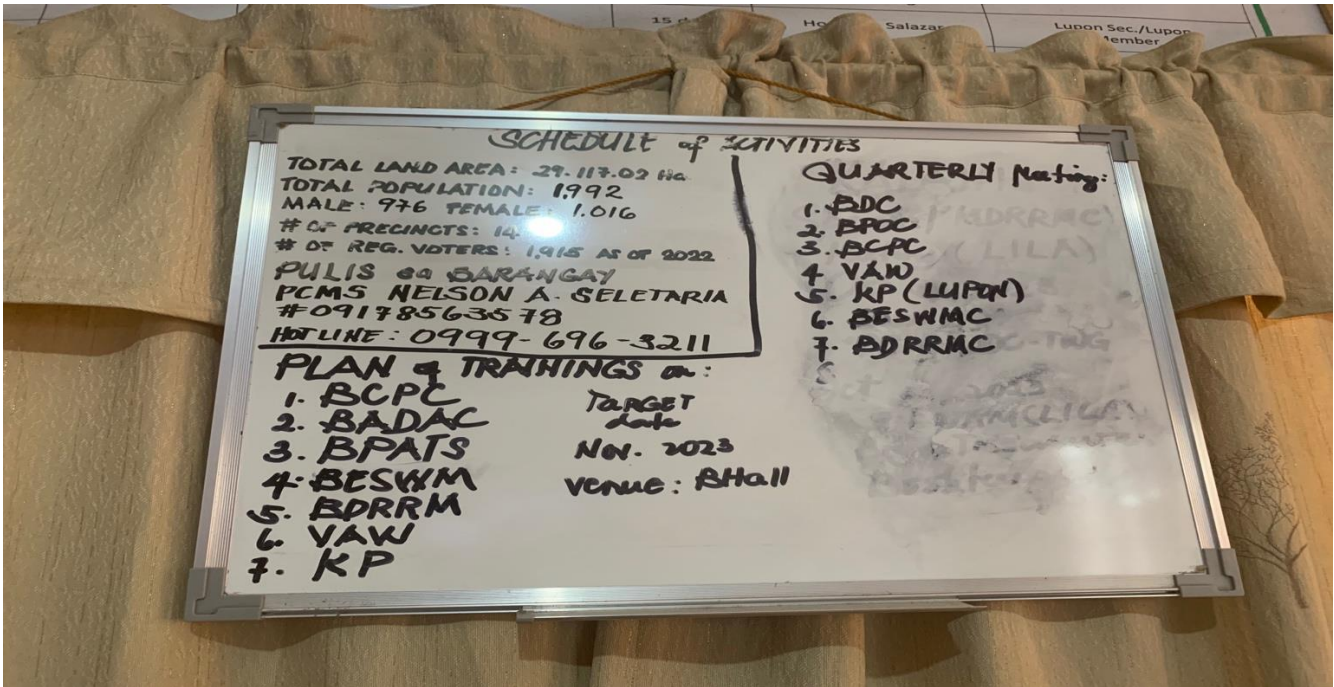 15
Salazar
Lupon Sec./Lupon
Member
SCHEDULE of ACTIVITIES
TOTAL LAND AREA: 29.117.02 Ha
TOTAL POPULATION: 1,992
MALE: 976 FEMALE: 1.016
# OF PRECINCTS: 14
# OF REG. VOTERS: 1,915 AS OF 2022
PULIS sa BARANGAY
PCMS NELSON A. SELETARIA
#09178563578
HOTLINE: 0999-696-3211
PLAN & TRAININGS on:
1. BCPC
2. BADAC
3. BPATS
4. BESWM
5. BDRRM
6. VAW
7. KP
TARGET
date
Nov. 2023
venue: BHall
QUARTERLY Meeting:
1. BDC
2. BPOC
3. BCPC
4 VAW
5. KP (LUPON)
6. BESWMC
7. BDRRMC
8